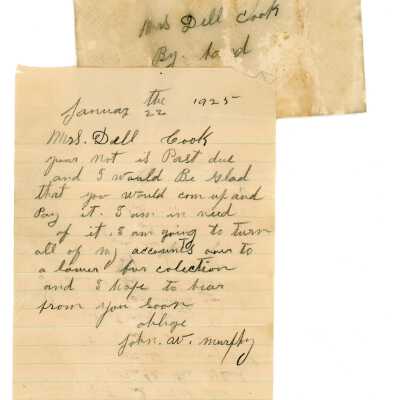 Mrs Dell Cook
By hand
Januar the 22 1925
Mrs. Dell Cook
your not is Past due
and I would Be Glad
that you would com up and
Pay it. I am in need
of it. I am going to turn
all of my accounts over to
a lawer for colection
and I hope to hear
from you soon
oblige
John. W. Murphy